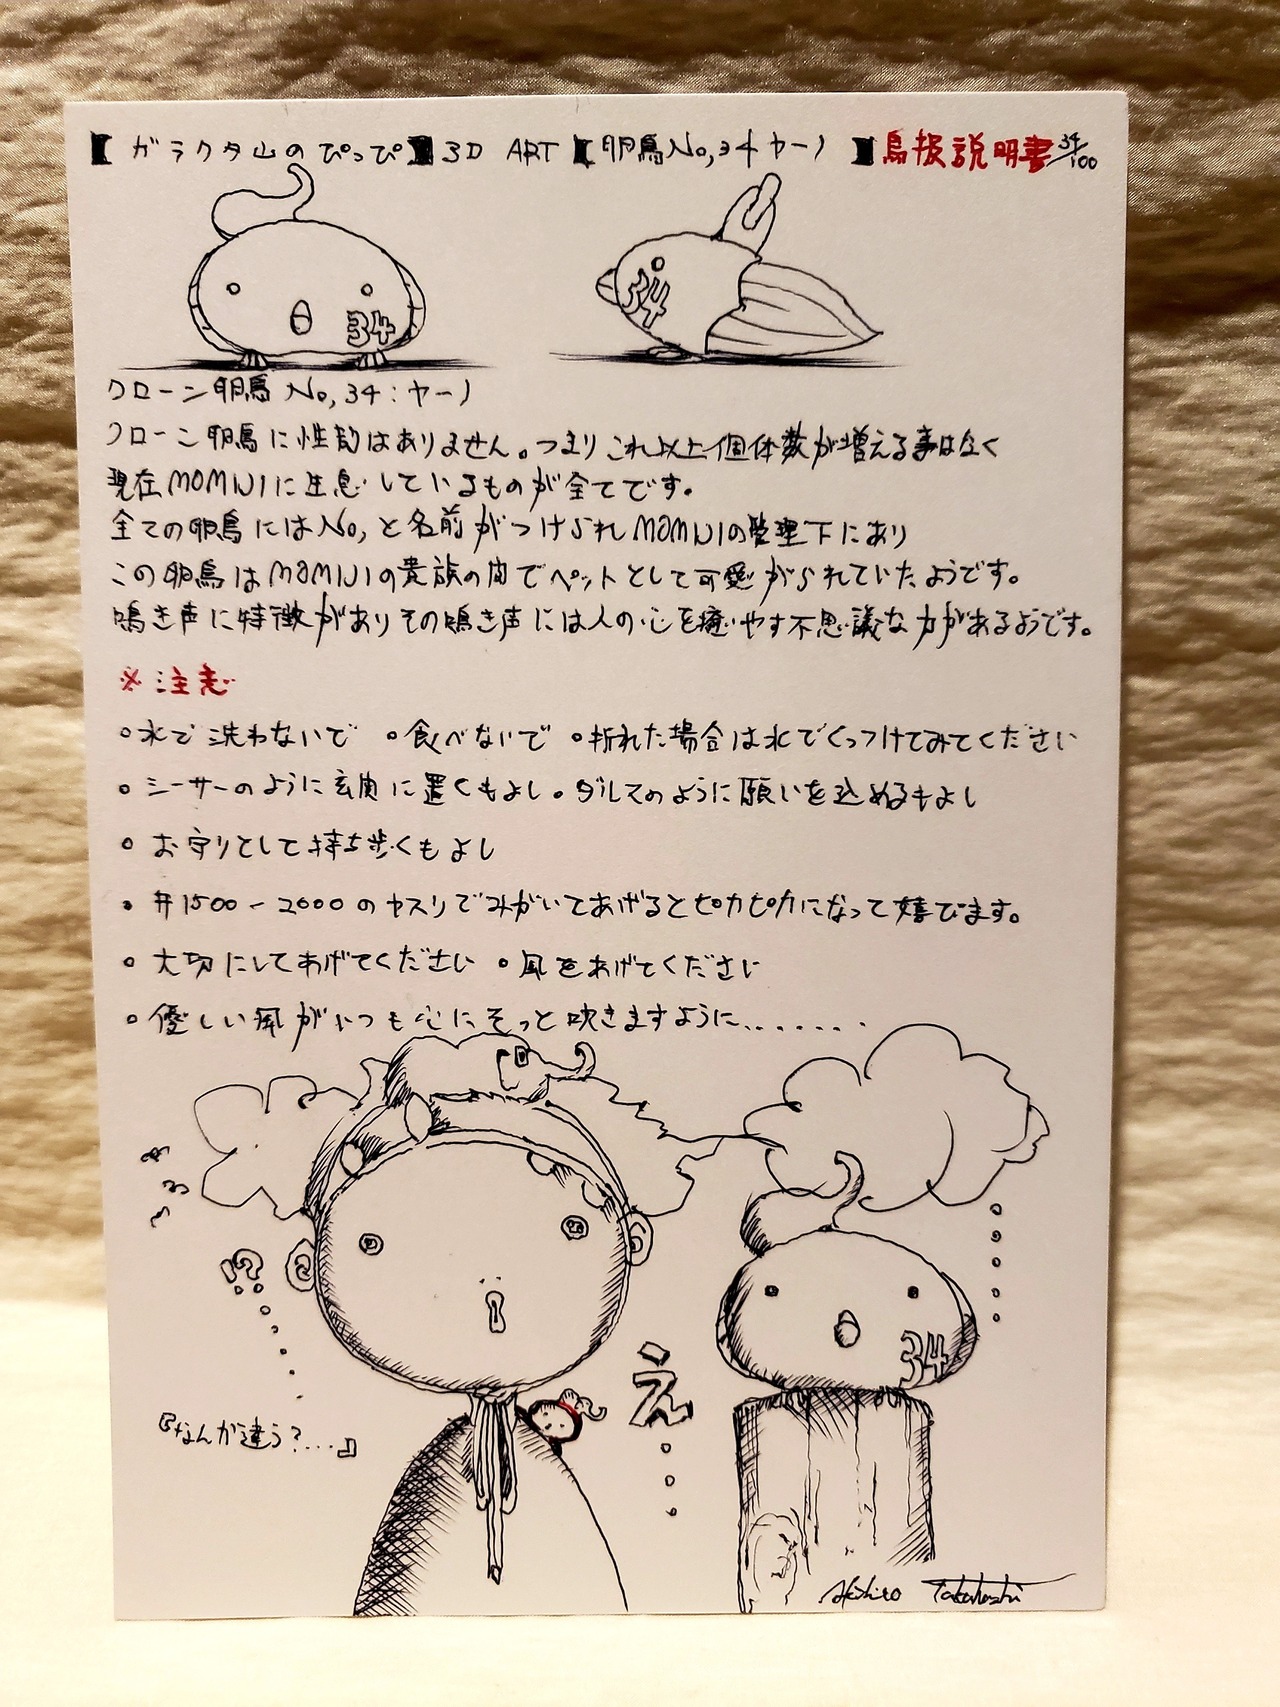 【ガラクタ山のぴっぴ】3D ART【卵鳥No,34ヤーノ】鳥扱説明書34/100
34
34
クローン卵鳥No,34:ヤーノ
クローン卵鳥に性別はありません。つまりこれ以上個体数が増える事はなく
現在MOMIJIに生息しているものが全てです。
全ての卵鳥にはNo,と名前がつけられMOMIJIの管理下にあり
この卵鳥はMOMIJIの貴族の間でペットとして可愛がられていたようです。
鳴き声に特徴がありその鳴き声には人の心を癒やす不思議な力があるようです。
※注意
○水で洗わないで ○食べないで ○折れた場合は水でくっつけてみてください
○シーサーのように玄関に置くもよし。ダルマのように願いを込めるもよし
○お守りとして持ち歩くもよし
○#1500-2000のヤスリでみがいてあげるとピカピカになって嬉びます。
○大切にしてあげてください ○風をあげてください
○優しい風がいつも心にそっと吹きますように.......
!?
34
え...
『なんか違う?...』
Akihiro Takahashi